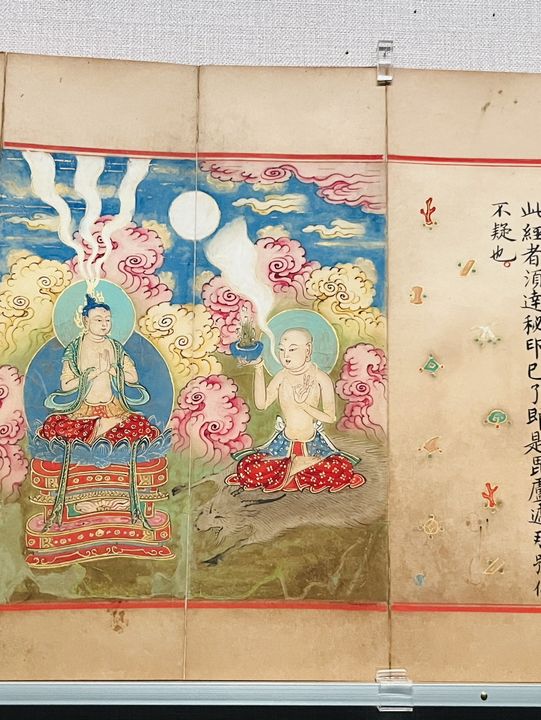 此経者湏達秘印已了即是毘盧遮那
不疑也